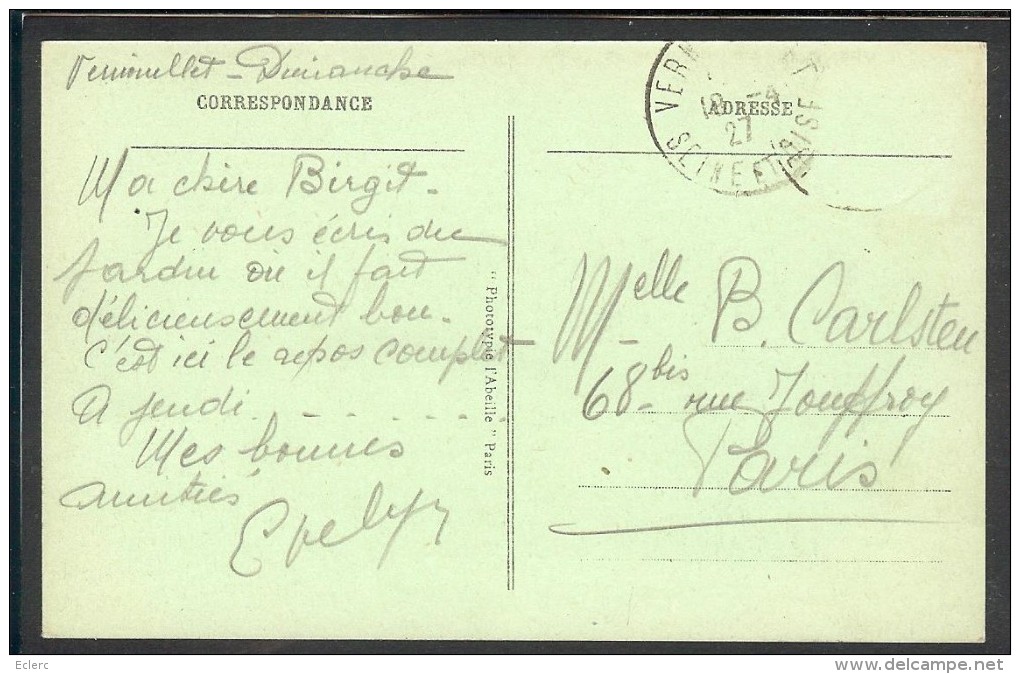 Vernouillet - Dimanche
CORRESPONDANCE
Ma chère Birgit -
Je vous écris du
jardin où il fait
délicieusement bon -
c'est ici le repos complet -
A jeudi - - - - - -
Mes bonnes
amitiés
" Photoypie l'Abeille " Paris
ADRESSE
VER
T
-4
27
SEINE ET OISE
Melle B. Carlsten
68 bis rue Jouffroy
Paris
Eclerc
www.delcampe.net